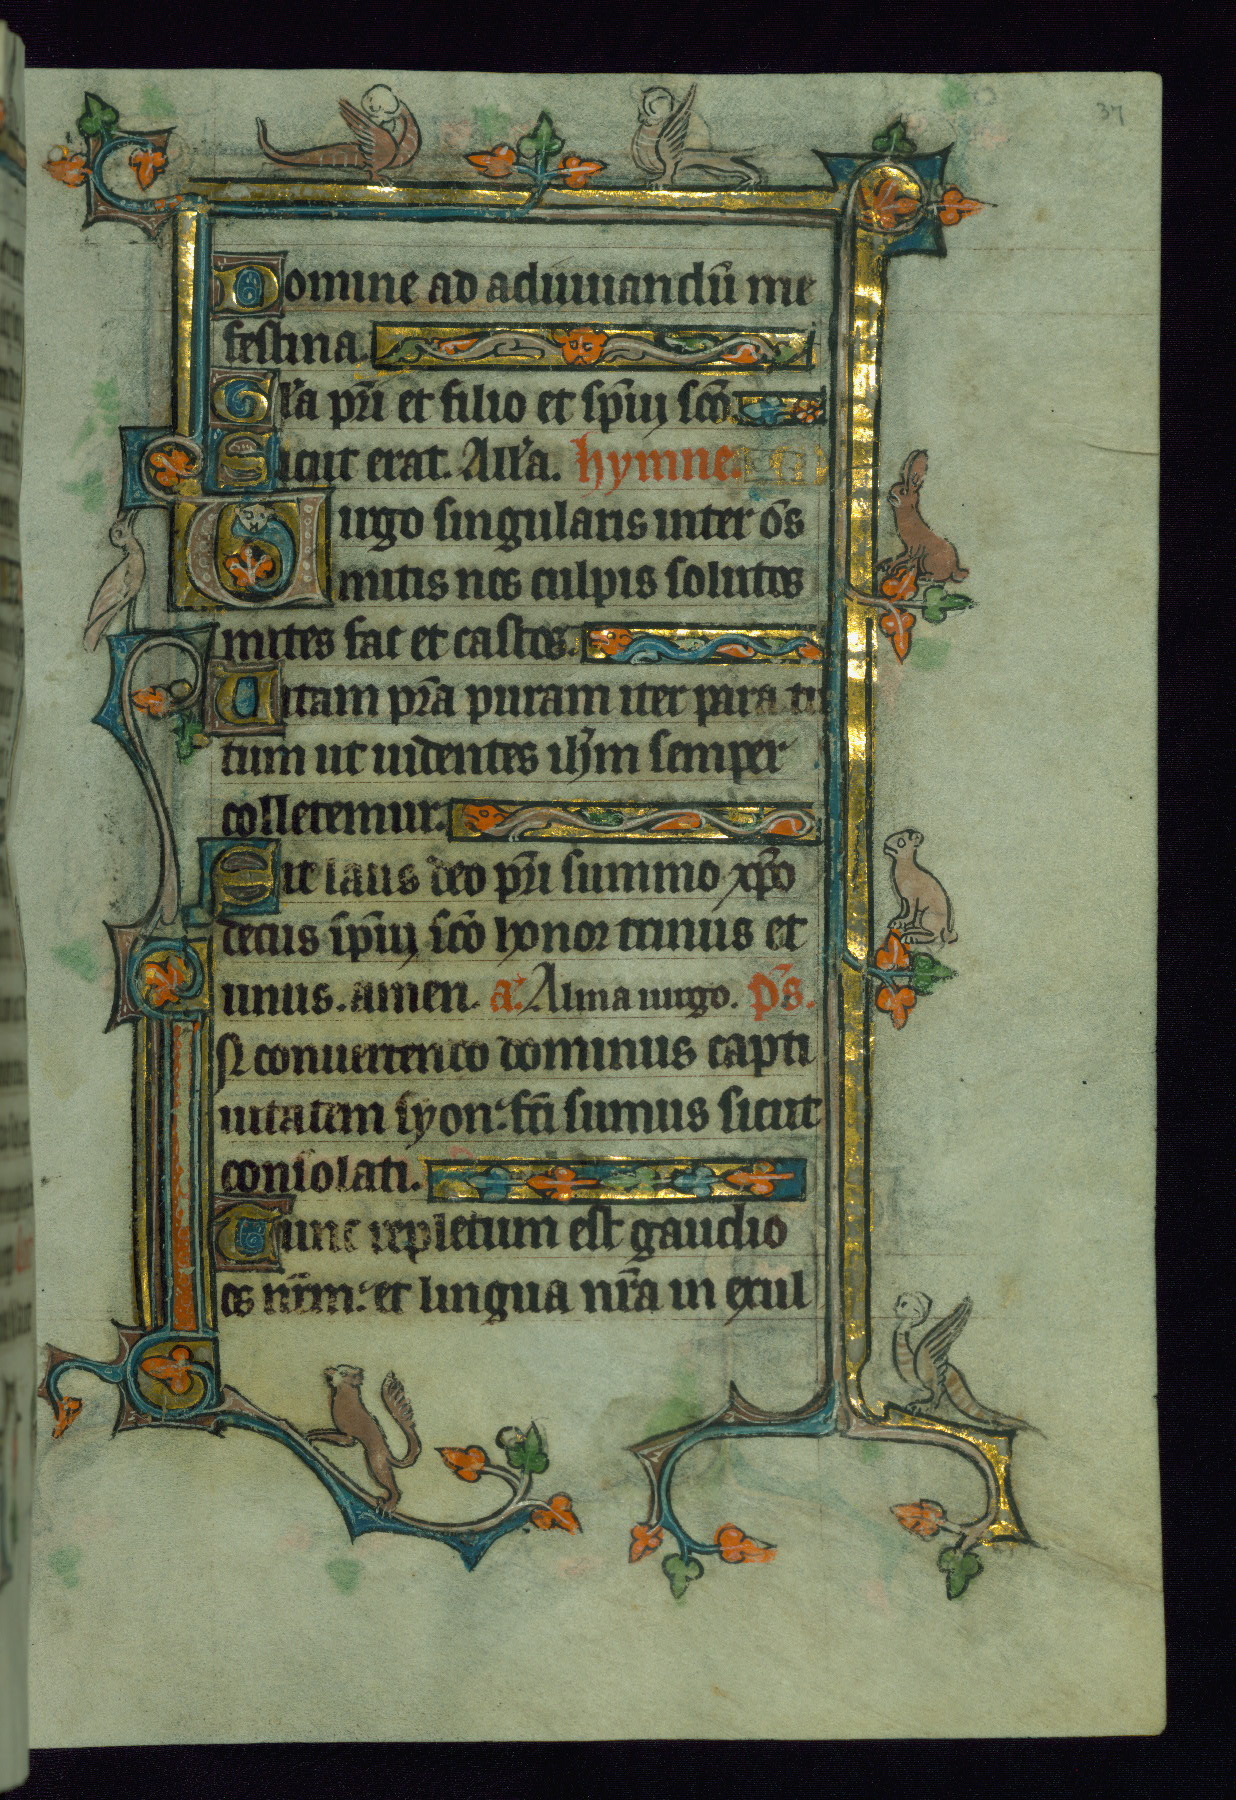 37
Domine ad adiuuandū me
festina.
Gl'a pr̄i et filio et sp̄iui sc̄o
Sicut erat. All'a. hymne.
Uirgo singularis inter om̄s
mitis nos culpis solutos
mites fac et castos.
Uitam pr̄a puram iter para tu
tum ut uidentes ih̄m semper
colletemur.
Sit laus deo pr̄i summo xp̄o
decus sp̄iui sc̄o honor trinus et
unus. amen. a. Alma uirgo. p̄s.
In conuertendo dominus capti
uitatem syon: fc̄i sumus sicut
consolati.
Tunc repletum est gaudio
os nr̄m: et lingua nr̄a in exul